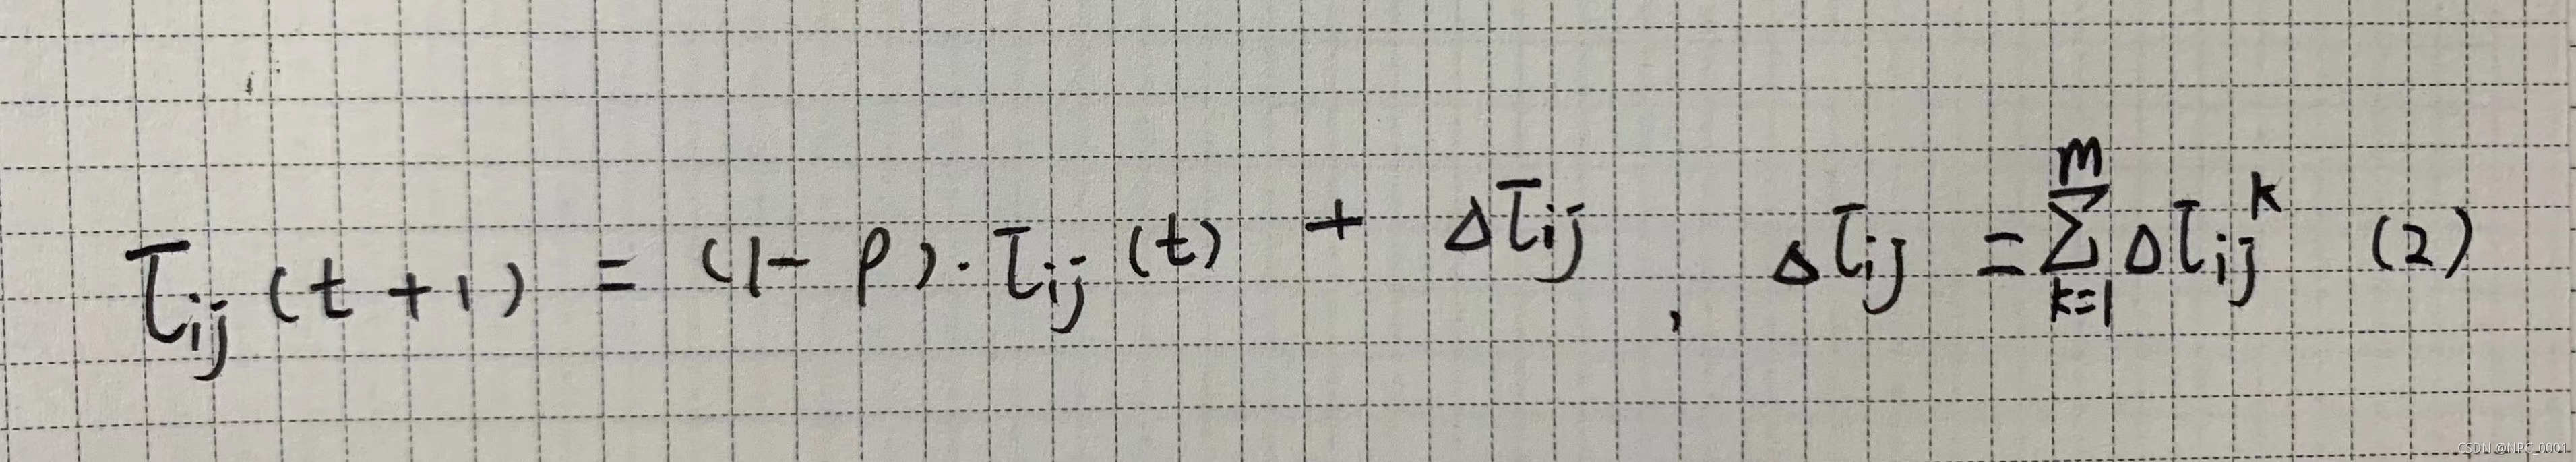 τij(t+1) = (1-ρ)·τij(t) + Δτij , Δτij = ∑_{k=1}^{m} Δτij^k (2)
CSDN @NPC_0001